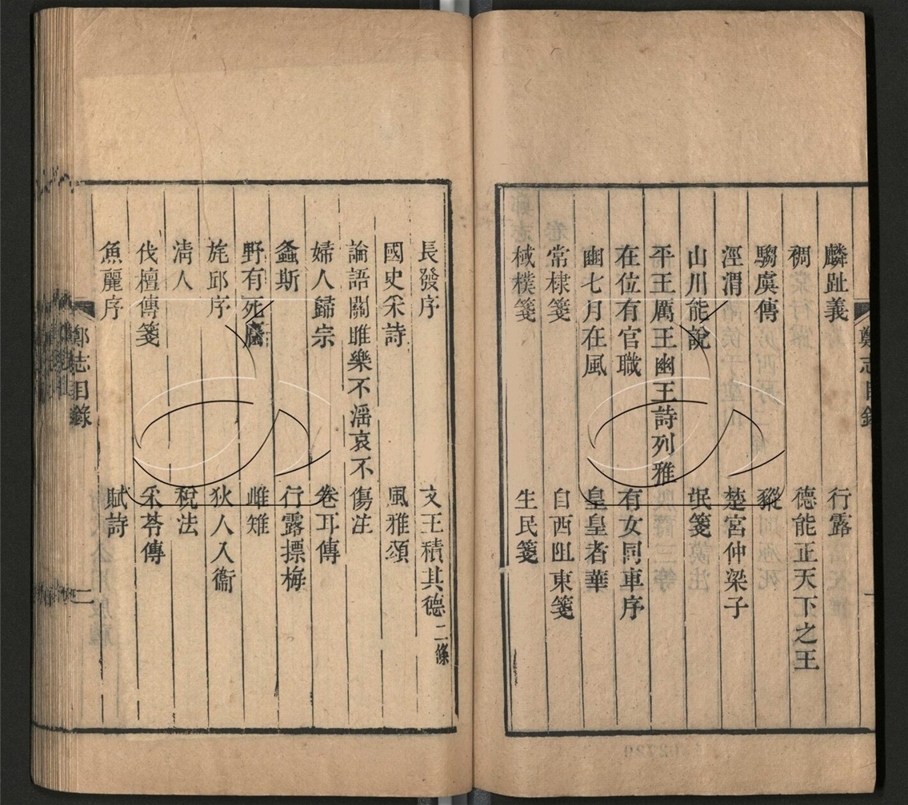 麟趾義 行露
稠 德能正天下之王
騶虞傳 豵
涇渭 楚宮仲梁子
山川能說 氓箋
平王厲王幽王詩列雅
在位有官職 有女同車序
豳七月在風 皇皇者華
常棣箋 自西徂東箋
棫樸箋 生民箋
鄭志目錄
長發序 文王積其德二條
國史采詩 風雅頌
論語關雎樂不淫哀不傷注
婦人歸宗 卷耳傳
螽斯 行露摽梅
野有死麕 雌雉
旄邱序 狄人入衞
清人 稅法
伐檀傳箋 采苓傳
魚麗序 賦詩
鄭志目錄 二